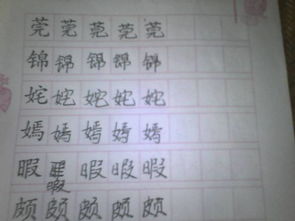 莞莞莞莞莞
锦锦锦锦锦
姹姹姹姹姹
嫣嫣嫣嫣嫣
暇暇暇暇暇
颇颇颇颇颇